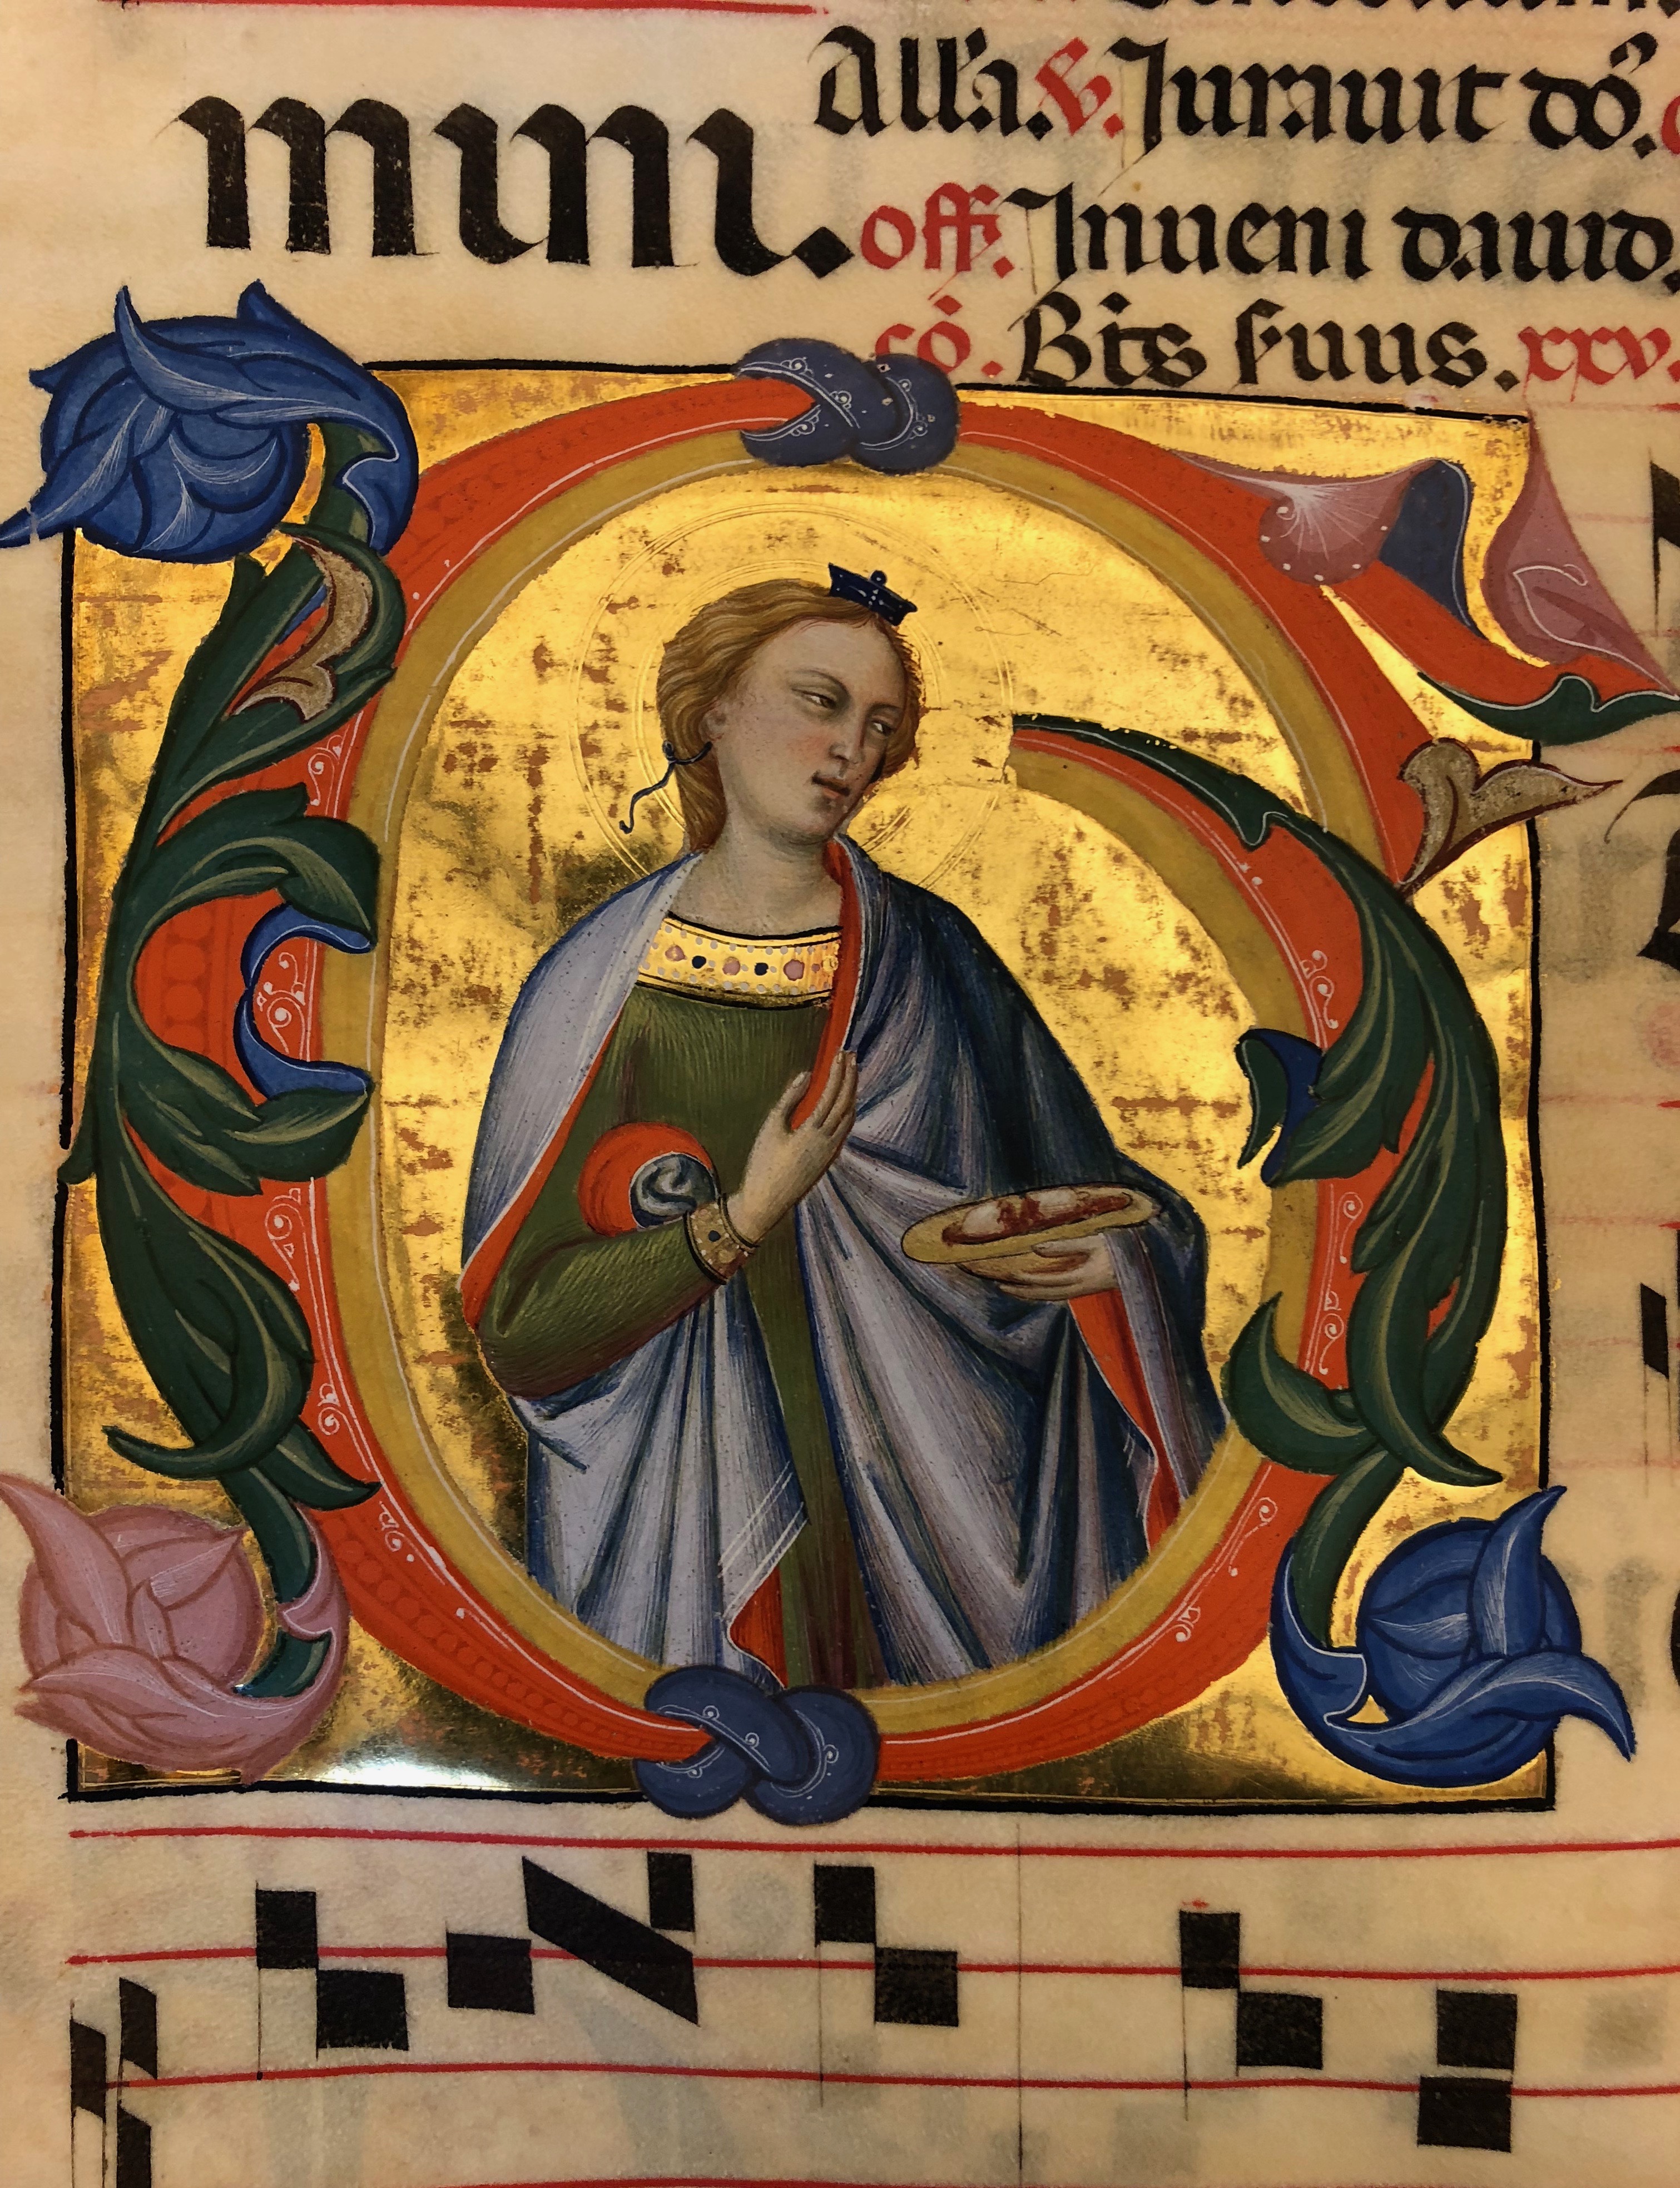 mini.
All'a. ℣. Jurauit dō.
off. Inueni dauid.
cō. Bt̄s seruus. xxv.
G